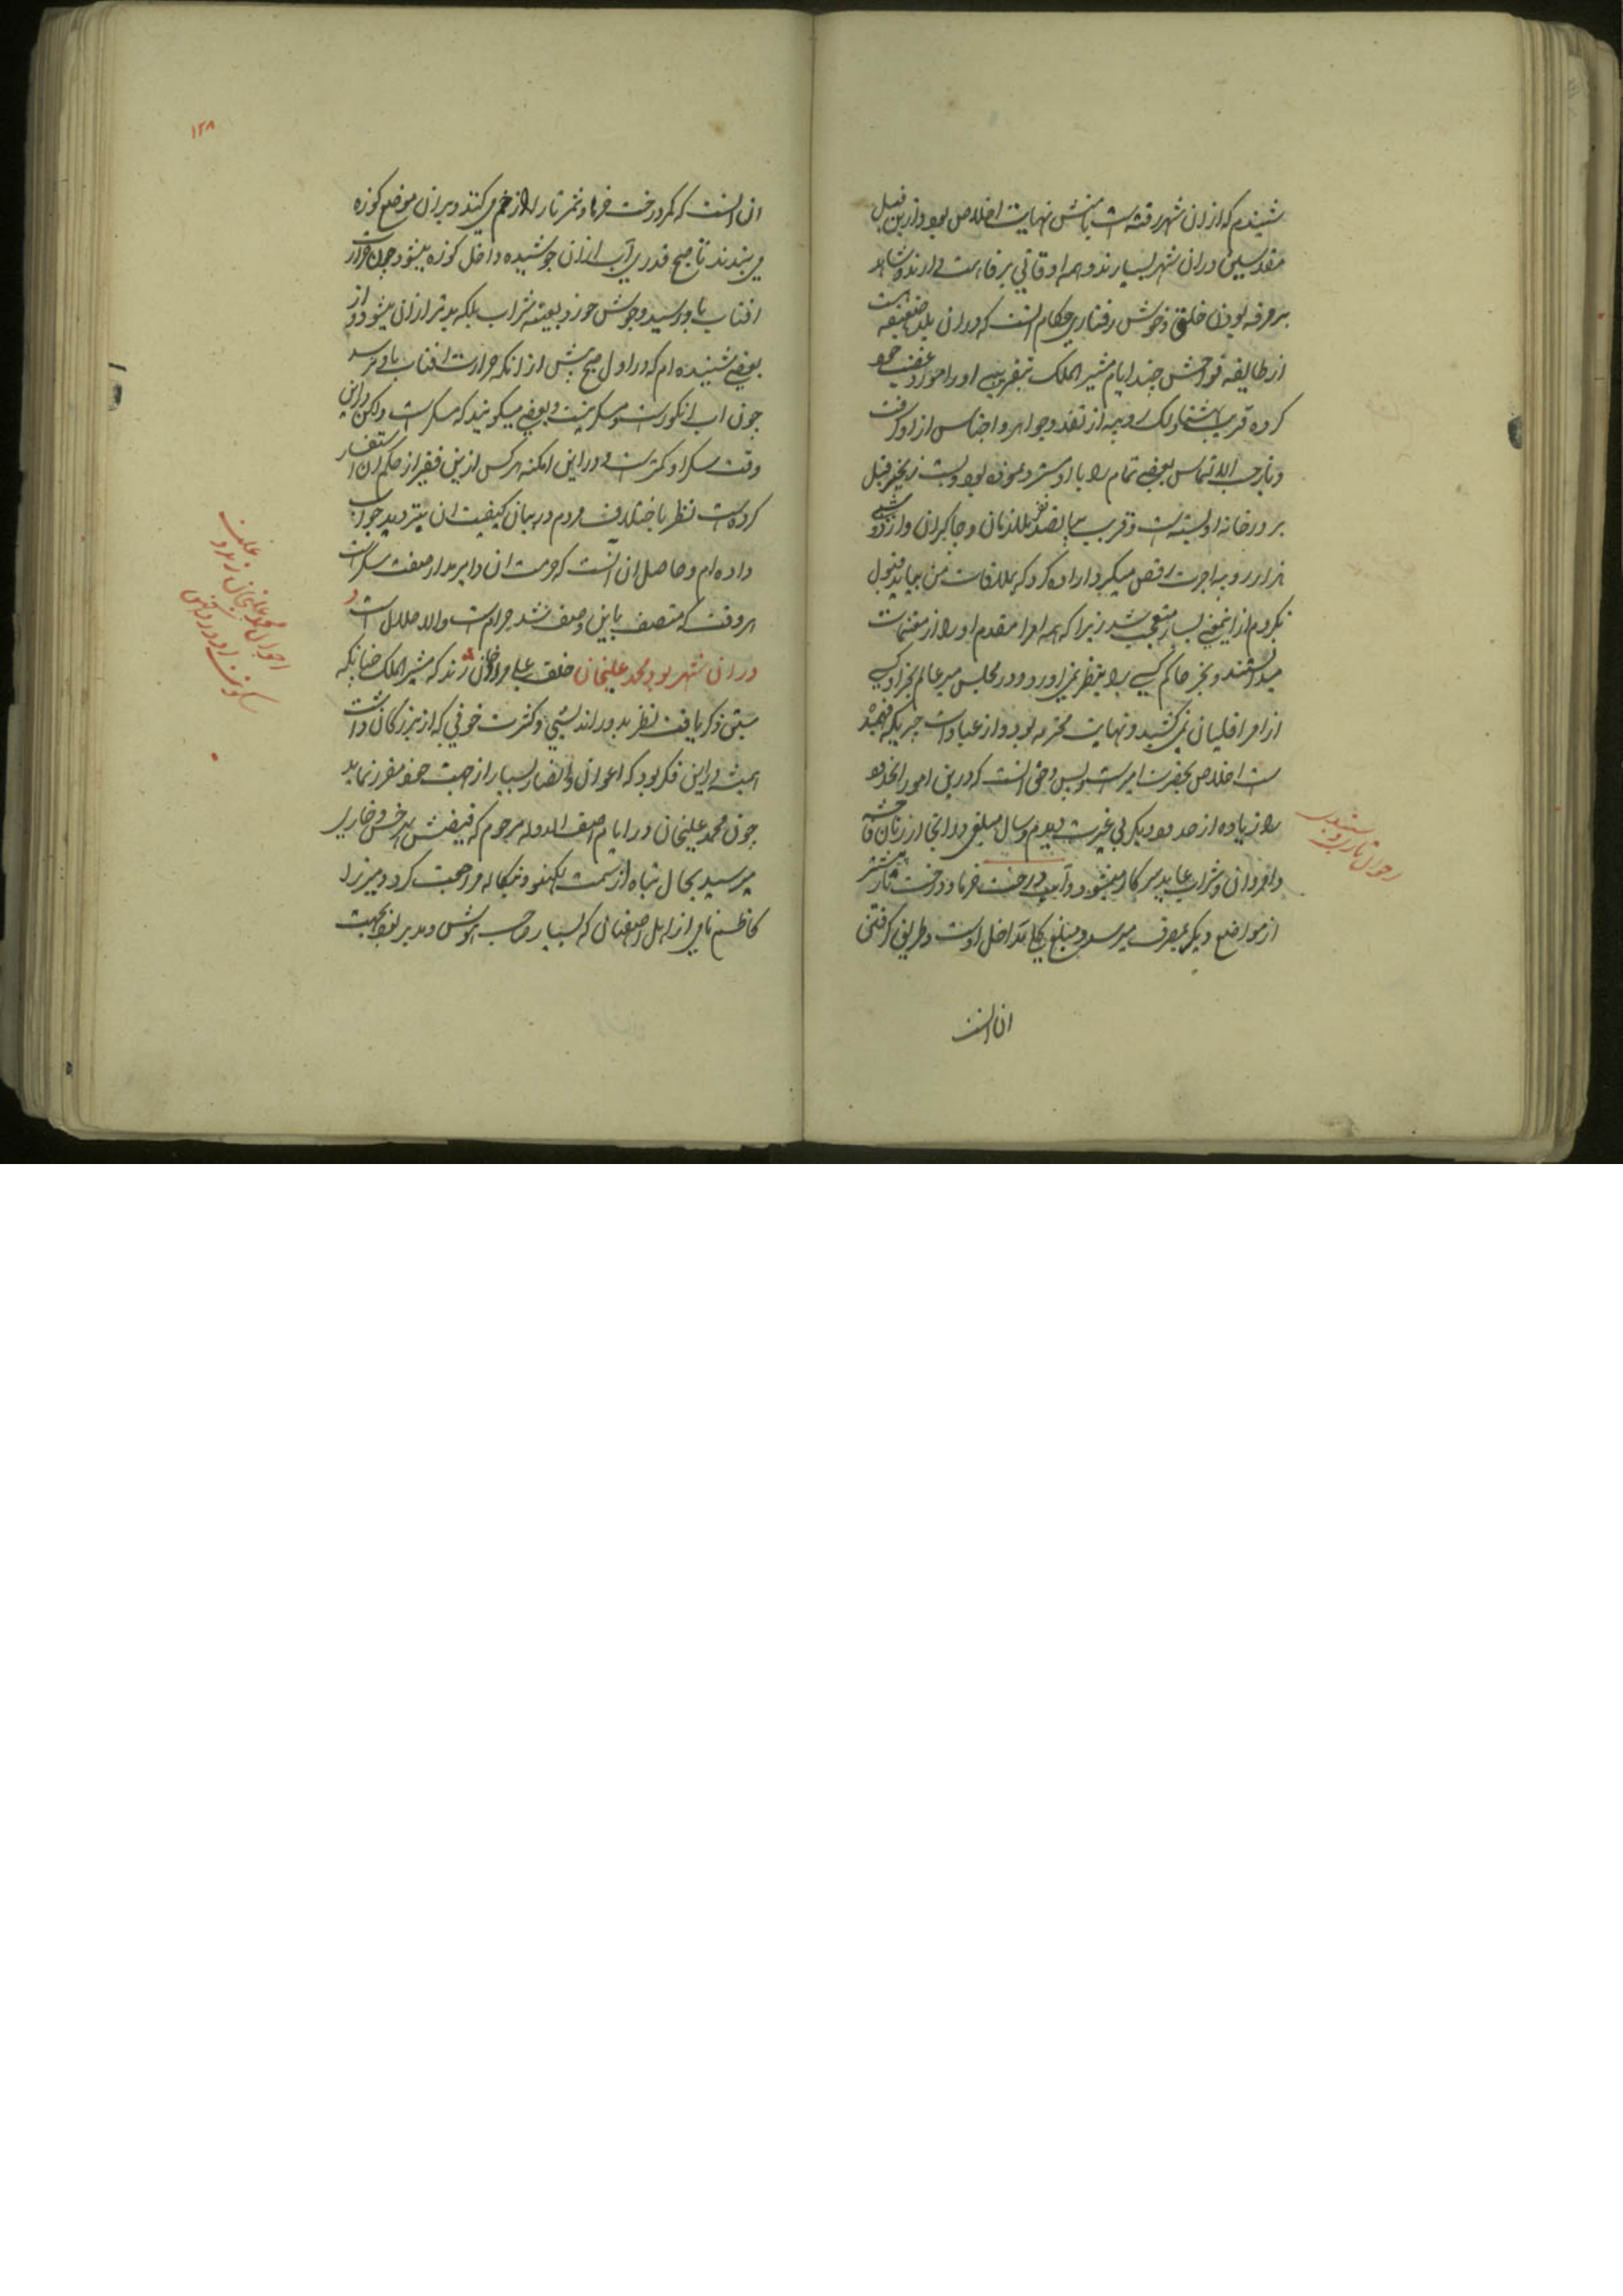 شنیدم که ازان شهر رفته است بامنش نهایت اخلاص بود وازین قبیل
مقدسین دران شهر بسیارند و همه اوقاتی برفاهیت دارند و شاهد
بر مرفه بودن خلق و خوش رفتاری حکام انست که دران بلد ضعیفه است
از طایفه فواحش چند ایام مشیر الملک بتقریبی او را مورد غضب خود
کرده قریب بهشتاد لک روپیه از نقد و جواهر و اجناس از او گرفت
و باز حسب الالتماس بعضی تمام را باو مسترد نموده بود و بست زنجیر فیل
بر در خانه او بسته است و قریب بپانصد نفر ملازمان و چاکران دارد و شبی
هزار روپیه اجرت رقص میگیرد اراده کرد که بملاقات من بیاید قبول
نکردم از اینمعنی بسیار متعجب شد زیرا که همه امرا مقدم او را از مغتنمات
میدانستند و بجز حاکم کسی را بنظر نمی اورد و در مجلس میر عالم بجز او کسی
از امرا قلیان نمی کشید و نهایت محترمه بود و از عبادات چیزیکه فهمیده
است اخلاص بحضرت امیر است و بس و حق انست که درین امور انخدیو
را زیاده از حد و دیگر بی غیرت دیدم و سال مبلغی در انجا از زنان فاحشه
و امردان و شراب عاید سرکار میشود و آب درخت خرما و درخت تار بیشتر
از مواضع دیگر بمصرف میرسد و مبلغ کلی مداخل اوست و طریق گرفتن
ان انست
۱۲۸
ان انست که کمر درخت خرما و ثمر تار را زخم می کنند و بران موضع کوزه
می بندند تا صبح قدری آب ازان جوشیده داخل کوزه میشود چون حرارت
افتاب باو رسید و جوش خورد بعینه شراب بلکه بدتر ازان میشود و از
بعضی شنیده ام که در اول صبح پیش از انکه حرارت افتاب باو برسد
چون اب انگور است و مسکر نیست و بعضی میگویند که مسکر است ولکن دراین
وقت سکر او کمتر است و دراین امکنه هر کس ازین فقیر از حکم ان استفسار
کرده است نظر باختلاف مردم در بیان کیفیت ان بتردید جواب
داده ام و حاصل ان انست که حرمت ان دایر مدار صفت سکر است
هر وقت که متصف باین وصف شد حرام است والا حلال است و
دران شهر بود محمد علیخان خلف علی مراد خان زند که مشیر الملک چنانکه
سبق ذکر یافت نظر بدور اندیشی و کثرت خوفی که از بزرگان داشت
همیشه دراین فکر بود که اعوان و انصار بسیار از جهت خود مقرر نماید
چون محمد علیخان در ایام اصف الدوله مرحوم که فیضش بهر خس و خاری
میرسید بحال تباه از سمت لکهنو و بنکاله مراجعت کرد و میرزا
کاظم نامی از اهل اصفهان که بسیار صاحب هوش و مدبر بود بجهت
احوال محمد علیخان زند و
احوال تار و سیندی